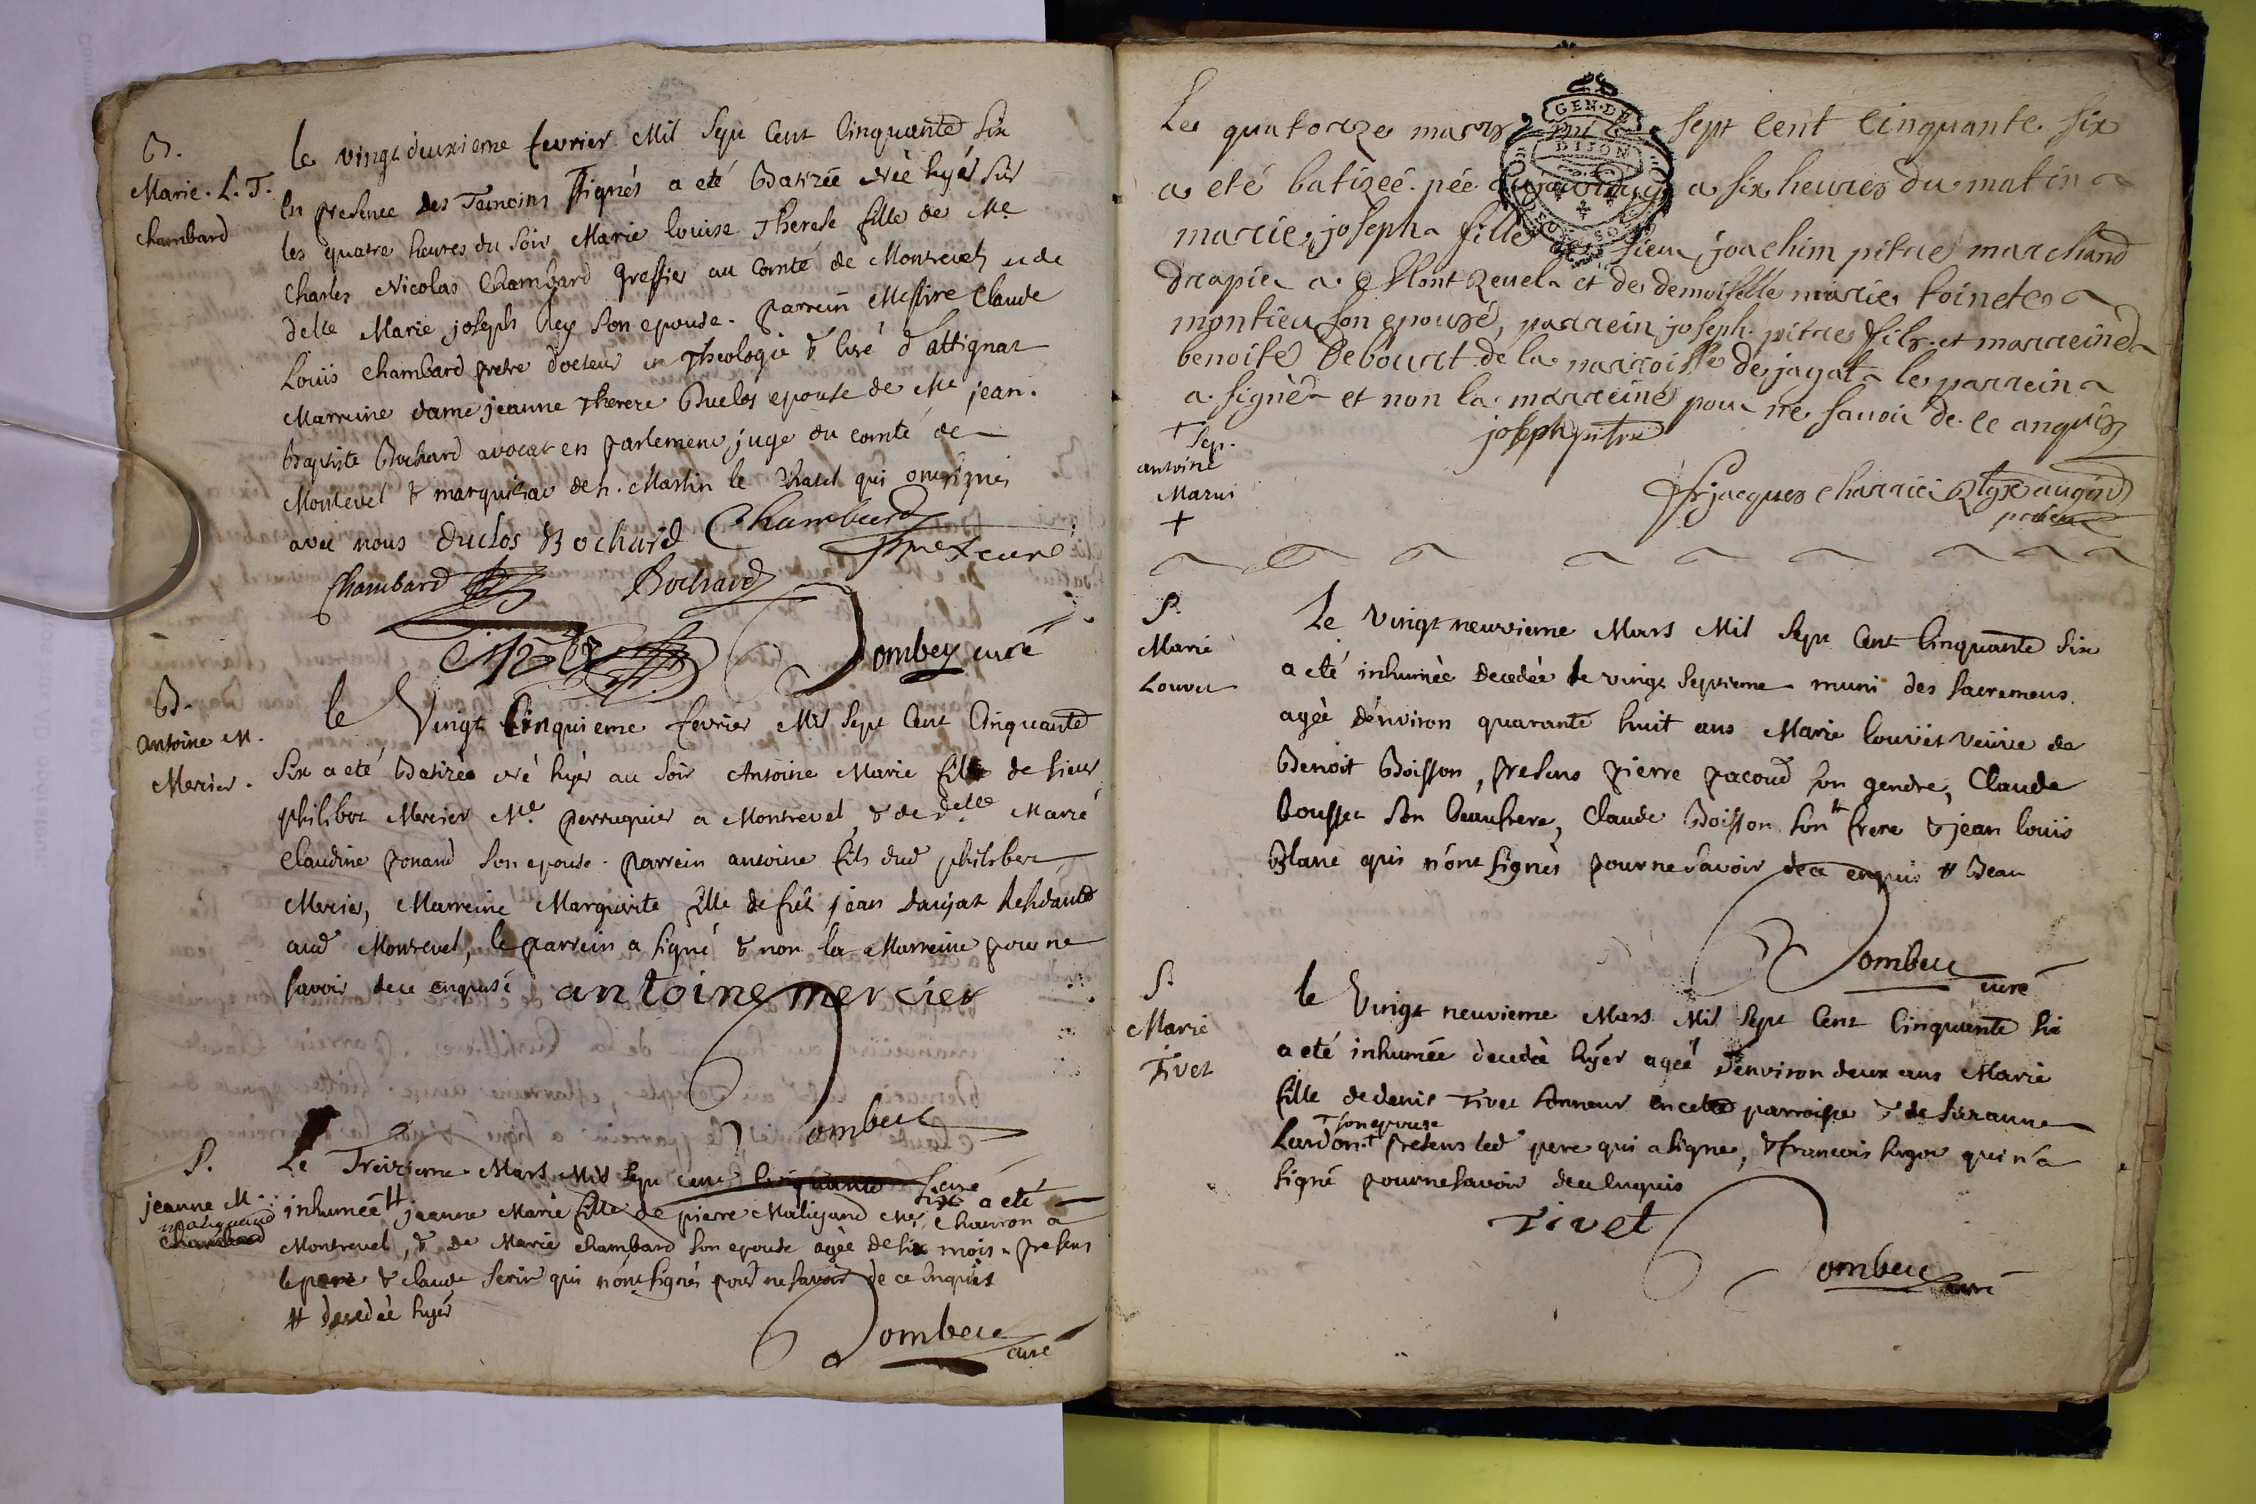 B.
Marie. L. T.
chambard
le vingt deuxieme fevrier Mil Sept Cent Cinquante Six
En presence des Temoins signés a eté Batizée née hyér sur
les quatre heures du soir Marie louise Therese fille de Me
Charles Nicolas Chambard greffier au Comté de Montrevel, et de
delle Marie joseph Rey son epouse. parrein Messire Claude
Loüis Chambard pretre docteur en Theologie & curé d'attignat
Marreine dame jeanne Therese Duclos epouse de Me jean.
Baptiste Bochard avocat en parlement, juge du comté de
Montrevel & marquisat de st. Martin le Chatel qui ont signés
avec nous duclos Bochard Chambard
curé
Chambard Bochard
Dombey curé
B.
antoine M.
Mercier.
le Vingt Cinquieme fevrier Mil Sept Cent Cinquante
Six a eté Batizée né hyér au soir Antoine Marie fils de sieur
philibert Mercier Me. perruquier a Montrevel, & de delle Marie
Claudine ponard son epouse. parrein antoine fils dud philibert
Mercier, Marreine Marguerite fille de feü jean
aud Montrevel, le parrein a signé & non la Marreine pour ne
savoir de ce enquise antoine mercier
Dombey
S.
jeanne M.
Maligand
Chambard
Le Treizieme Mars Mil Sept Cent Cinquante Six a eté
inhumée # jeanne Marie fille de pierre Maligand Me Charron a
Montrevel, & de Marie chambard son epouse agée de six mois. presens
le pere & claude qui n'ont signés pour ne savoir de ce enquis
# decedée hyér
Dombey
curé
Le quatorze mars mil sept cent cinquante six
a eté batizeé née a six heures du matin
marie, joseph fille de sieur joachim pitre marchand
drapier a Montrevel et de demoiselle marie toinete
montieu son epouse, parrein joseph pitre fils et marreine
benoite debourt de la parroisse de jayat le parrein
a signé et non la marreine pour ne savoir de ce enquis
joseph pitre
fr jacques
prieur
GEN. DE
DIJON
+ Sep.
antoine
Marie
+
S.
Marie
Louvet
Le Vingt neuvieme Mars Mil Sept Cent Cinquante Six
a eté inhumée decedée le vingt septieme muni des sacremens.
agée d'environ quarante huit ans Marie louvet veuve de
Benoit Boisson, presens pierre pacoud son gendre, Claude
Rousset son beaufrere, Claude Boisson son # frere & jean loüis
Blanc qui n'ont signés pour ne savoir de ce enquis # Beau
Dombey
curé
S.
Marie
Tivet
le Vingt neuvieme Mars Mil Sept Cent Cinquante Six
a eté inhumée decedée hyér agée d'environ deux ans Marie
fille de denis Tivet sonneur en cette parroisse & de Suzanne
+ son epouse
Lardon + presens led pere qui a signé, & francois qui n'a
signé pour ne savoir de ce enquis
Tivet
Dombey
curé